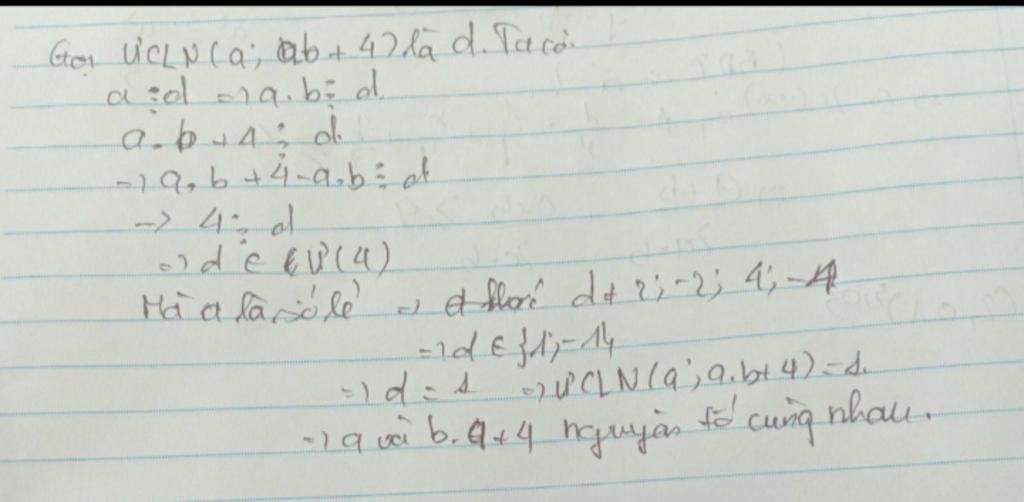 Gọi ƯCLN(a; ab + 4) là d. Ta có:
a ⋮ d => a.b ⋮ d
a.b + 4 ⋮ d
=> a.b + 4 - a.b ⋮ d
-> 4 ⋮ d
=> d ∈ Ư(4)
Mà a là số lẻ => d ≠ 2; -2; 4; -4
=> d ∈ {1; -1}
=> d = 1 => ƯCLN(a; a.b + 4) = 1.
=> a và b.a + 4 nguyên tố cùng nhau.